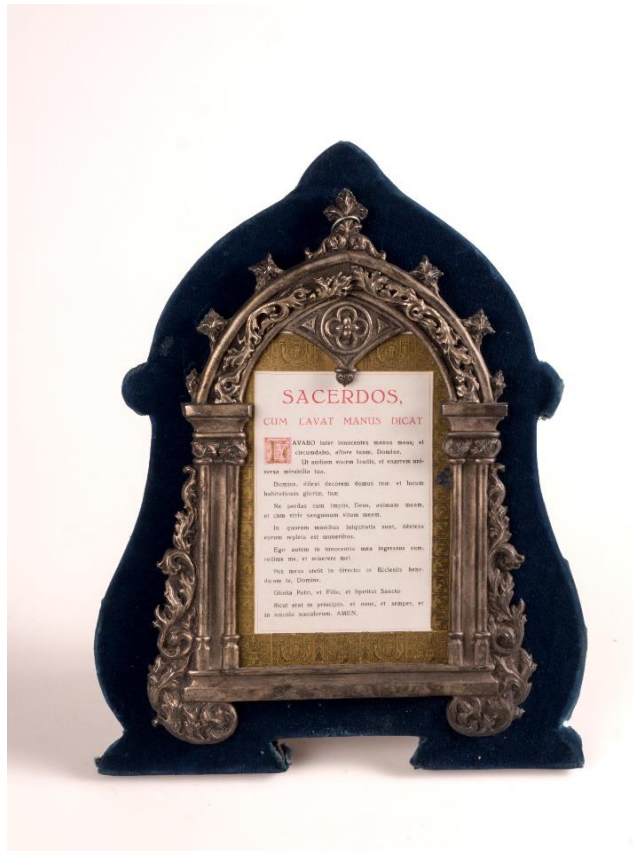 SACERDOS,
CUM LAVAT MANUS DICAT
LAVABO inter innocentes manus meas, et
circumdabo, altare tuum, Domine.
Ut audiam vocem laudis, et enarrem uni-
versa mirabilia tua.
Domine, dilexi decorem domus tuæ: et locum
habitationis gloriæ, tuæ
Ne perdas cum impiis, Deus, animam meam,
et cum viris sanguinum vitam meam.
In quorum manibus iniquitatis sunt, dextera
eorum repleta est muneribus.
Ego autem in innocentia mea ingressus sum:
redime me, et miserere mei
Pes meus stetit in directo: in Ecclesiis bene-
dicam te, Domine.
Gloria Patri, et Filio, et Spiritui Sancto
Sicut erat in principio, et nunc, et semper, et
in sæcula sæculorum. AMEN.